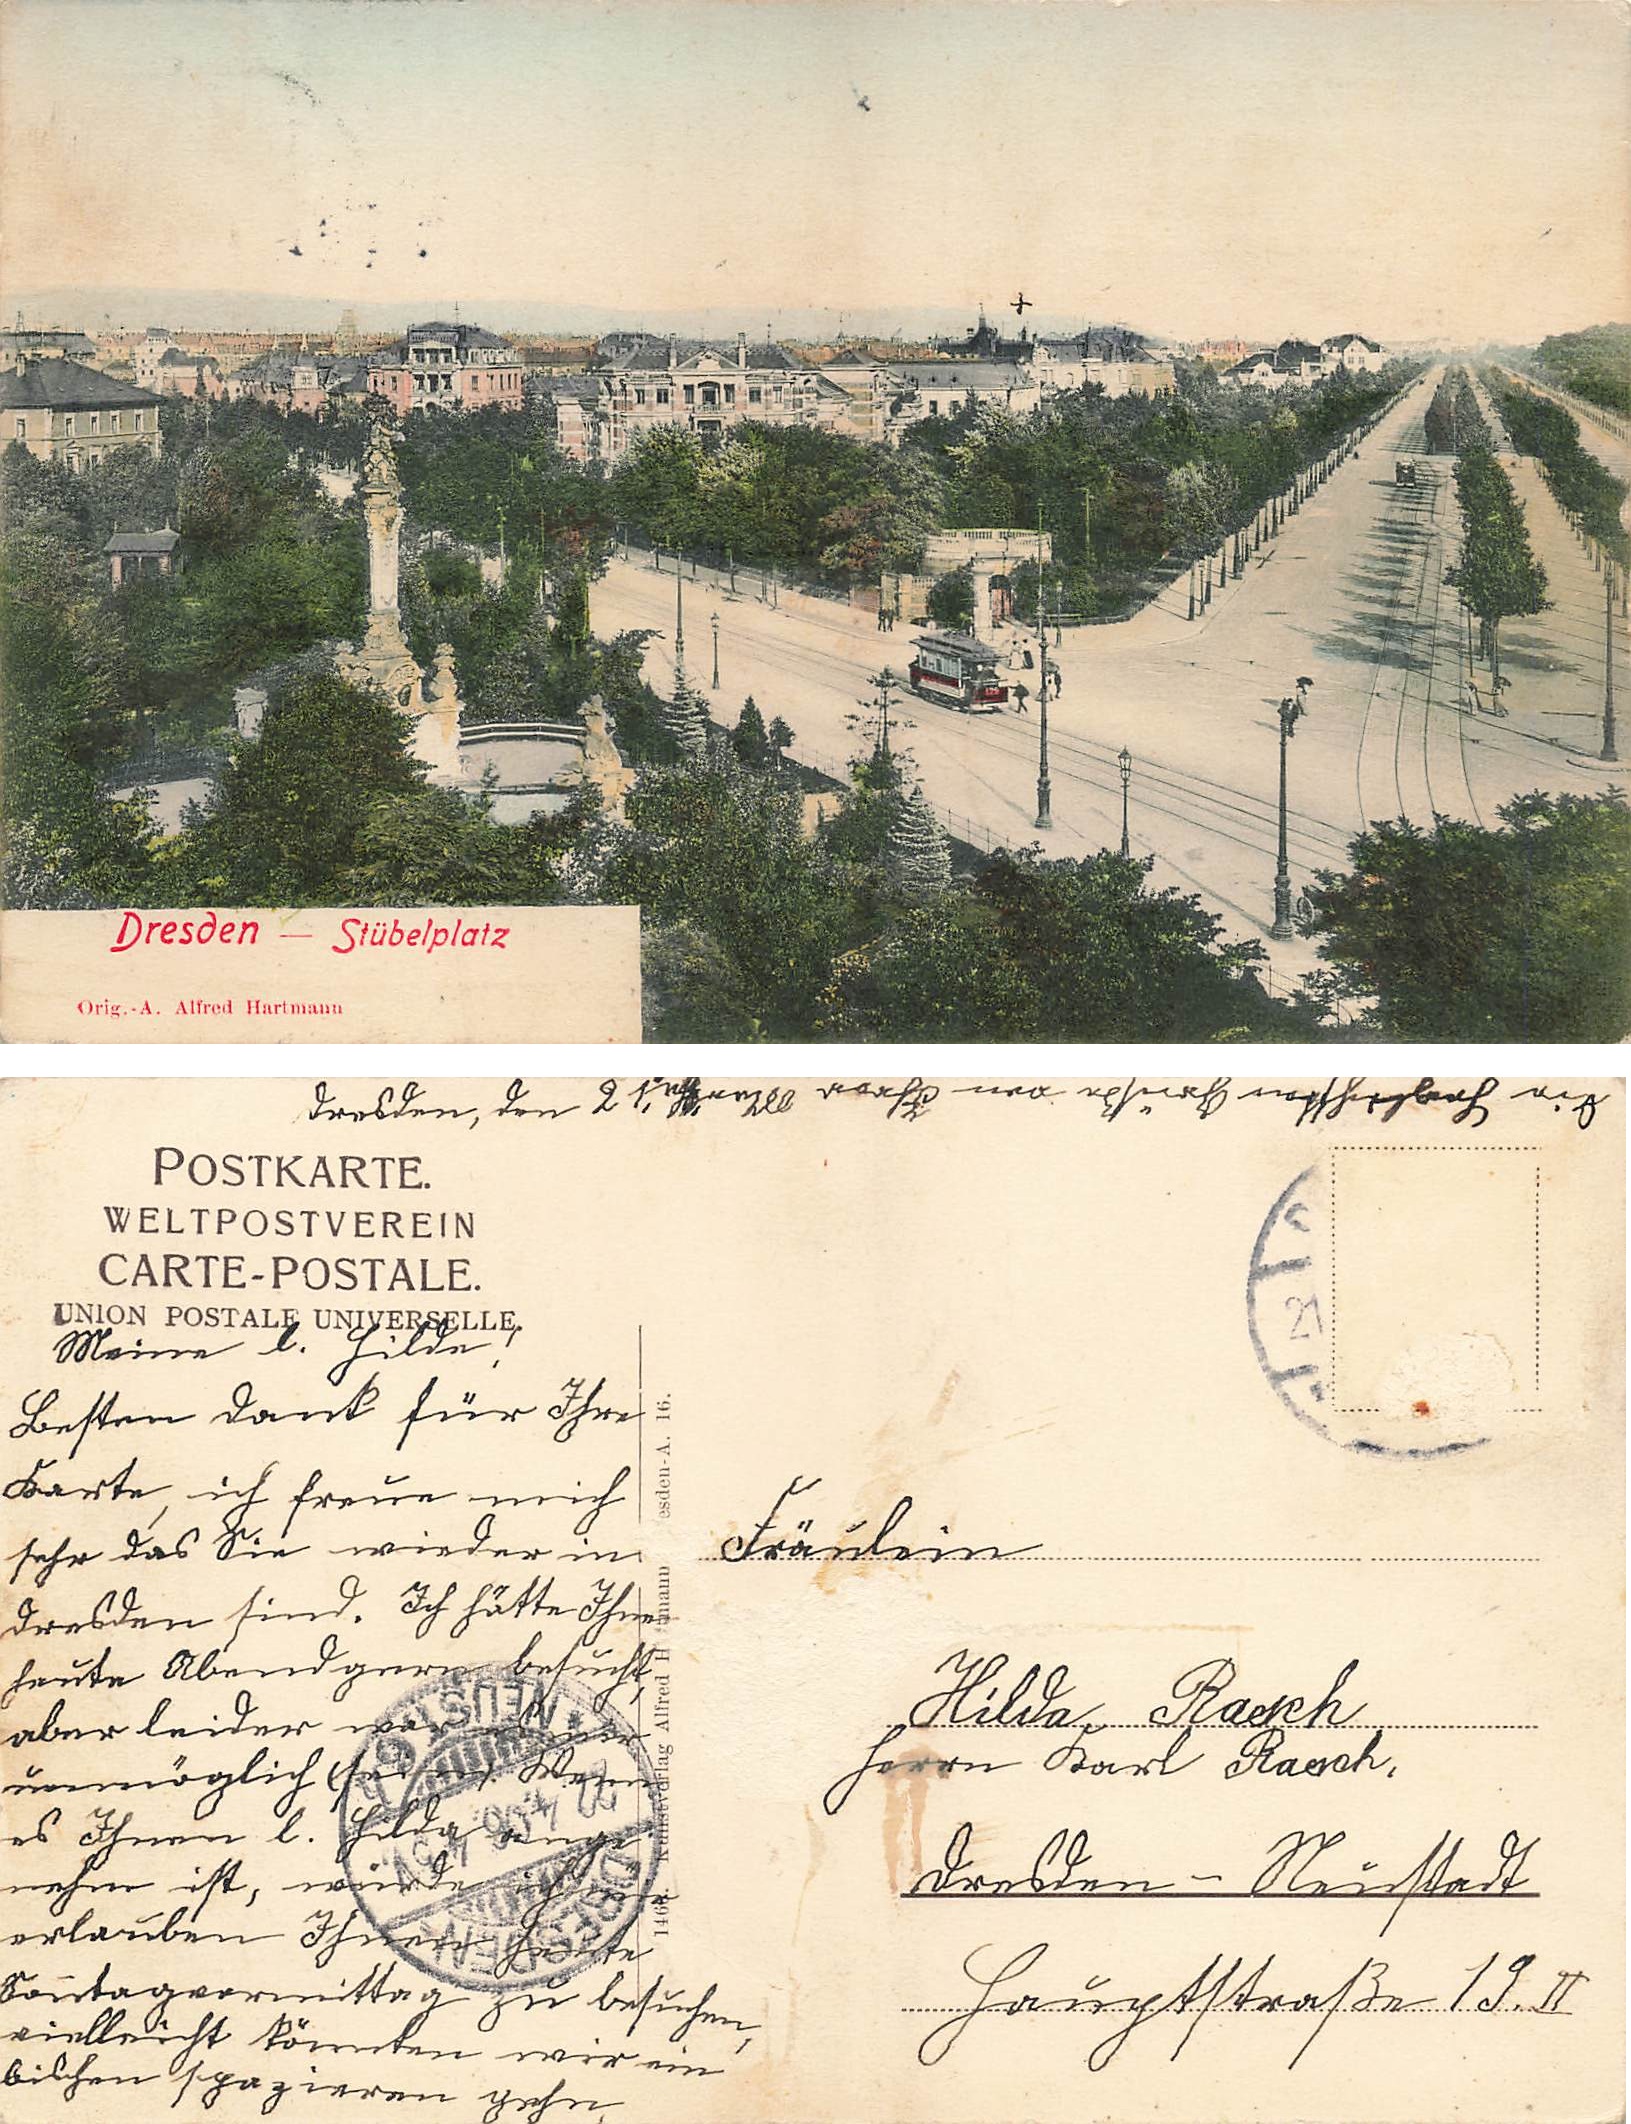 Dresden — Stübelplatz
Orig.-A. Alfred Hartmann
129
Dresden, den 21.
POSTKARTE.
WELTPOSTVEREIN
CARTE-POSTALE.
UNION POSTALE UNIVERSELLE.
Meine l. Hilde!
Besten Dank für Ihre
Karte, ich freue mich
sehr das Sie wieder in
Dresden sind. Ich hätte Ihnen
heute Abend gern besucht,
aber leider war es mir
unmöglich Wenn
es Ihnen l. Hilda ange
nehm ist, würde ich mir
erlauben Ihnen heute
Sonntagvormittag zu besuchen,
vielleicht könnten wir ein
bischen spazieren gehn.
Die herzlichsten Grüße von Ihrer
146 Kunstverlag Alfred H mann esden-A. 16.
21
DRESDEN
NEUST.
22 4.06.
Fräulein
Hilda Raesch
Herrn Karl Raesch,
Dresden-Neustadt
Hauptstraße 19. II